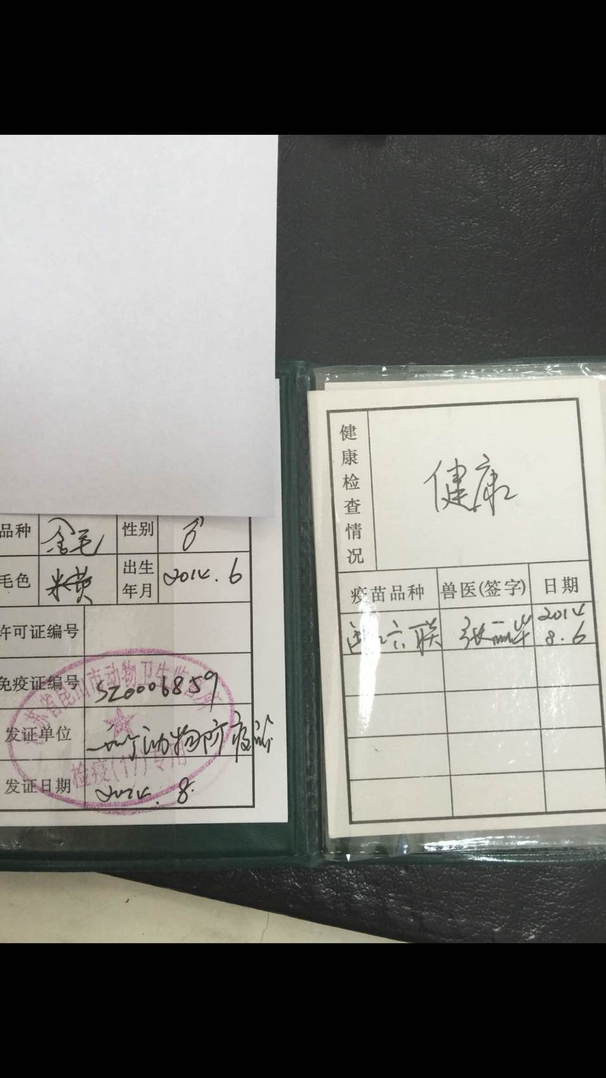 品种 金毛 性别 ♂
毛色 米黄 出生年月 2014.6
许可证编号
免疫证编号 SZ0006859
发证单位 动物防疫
发证日期 2014.8.
江苏省昆山市动物卫生监督所
检疫(17)专用
健康检查情况 健康
疫苗品种 兽医(签字) 日期
六联 张 2014 8.6